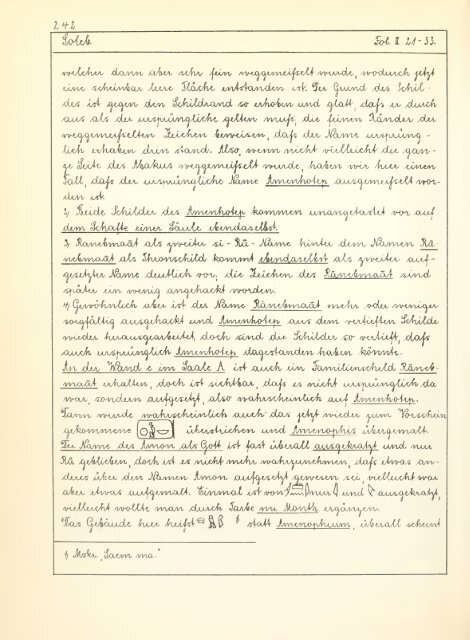 242
Soleb
Fol. II. 21-33.
welcher dann aber sehr fein weggemeifselt wurde, wodurch jetzt
eine scheinbar leere Fläche entstanden ist. Der Grund des Schil-
des ist gegen den Schildrand so erhoben und glatt, dafs er durch
aus als der ursprüngliche gelten mufs, die feinen Ränder der
weggemeifselten Zeichen beweisen, dafs der Name ursprüng-
lich erhaben drin stand. Also, wenn nicht vielleicht die gan-
ze Seite des Abakus weggemeifselt wurde, haben wir hier einen
Fall, dafs der ursprüngliche Name Amenhotep ausgemeifselt wor-
den ist.
2) Beide Schilder des Amenhotep kommen unangetastet vor auf
dem Schafte einer Säule ebendaselbst.
3) Ranebmaāt als zweiter si-Rā-Name hinter dem Namen Rā-
nebmaāt als Thronschild kommt ebendaselbst als zweiter auf-
gesetzter Name deutlich vor; die Zeichen des Rānebmaāt sind
später ein wenig angehackt worden.
4) Gewöhnlich aber ist der Name Rānebmaāt mehr oder weniger
sorgfältig ausgehackt und Amenhotep aus dem vertieften Schilde
wieder herausgearbeitet, doch sind die Schilder so vertieft, dafs
auch ursprünglich Amenhotep dagestanden haben könnte.
An der Wand c im Saale A ist auch ein Familienschild Rāneb-
maāt erhalten, doch ist sichtbar, dafs es nicht ursprünglich da
war, sondern aufgesetzt, also wahrscheinlich auf Amenhotep.
Dann wurde wahrscheinlich auch das jetzt wieder zum Vorschein
gekommene überstrichen und Amenophis übergemalt.
Der Name des Amon als Gott ist fast überall ausgekratzt und nur
Rā geblieben, doch ist es nicht mehr wahrzunehmen, dafs etwas an-
deres über den Namen Amon aufgesetzt gewesen sei, vielleicht war
aber etwas aufgemalt. Einmal ist von nur und ausgekratzt,
vielleicht wollte man durch Farbe nur Month ergänzen.
Das Gebäude hier heifst statt Amenophium, überall scheint